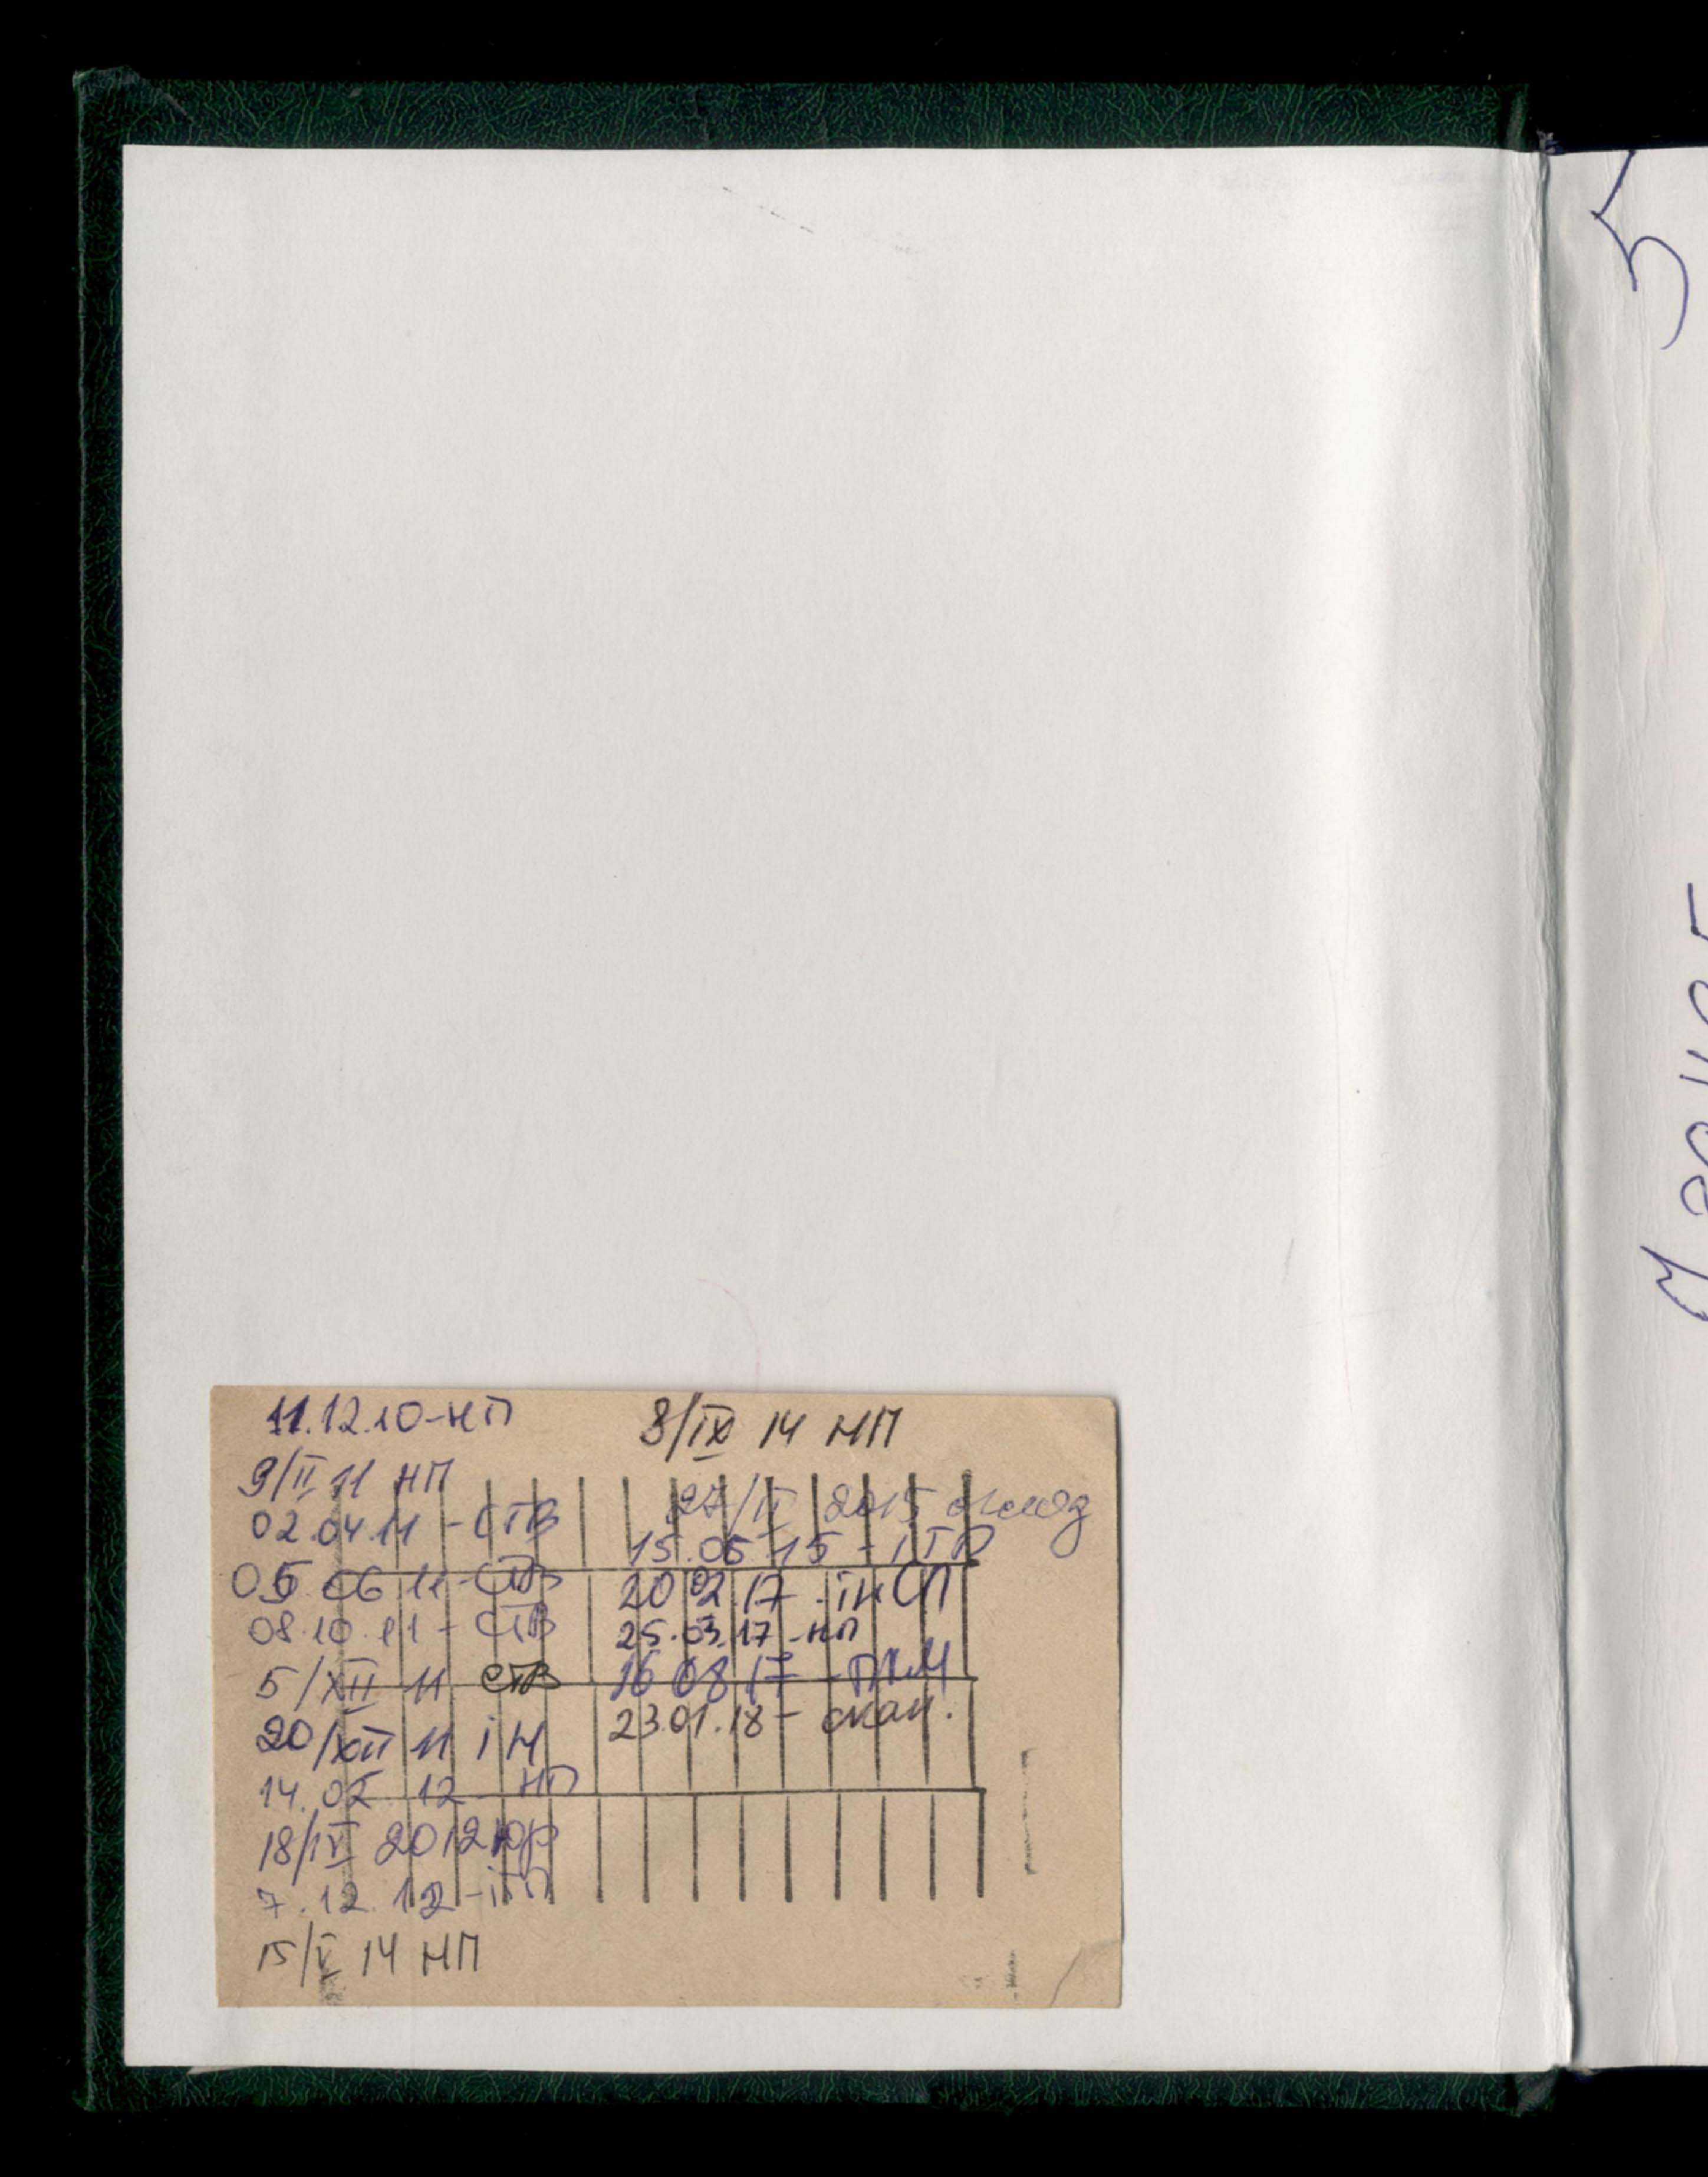 11.12.10-НП
9/II 11 НП
02.04.11 - СТВ
05.06 11 - СТВ
08.10.11 - СТВ
5/XII 11 СТВ
20/XII 11 ін
14.02.12 - НП
18/IV 2012 юр
7.12.12 - ІТП
15/V 14 НП
8/IX 14 НП
27/II 2015 огляд
15.05 15 - ІТП
20 02.17 - ін СП
25.03.17 - НП
16 08 17 -
23.01.18 - скан.
5